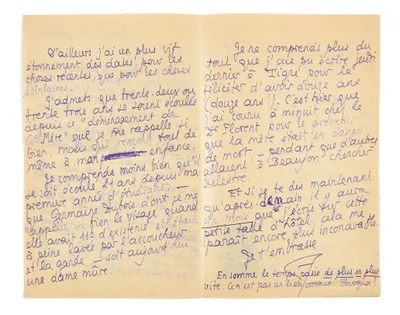 D'ailleurs j'ai un plus vif
étonnement des dates, pour les
choses récentes, que pour les choses
lointaines.
J'admets que trente-deux ou
trente trois ans se soient écoulés
depuis ce déménagement de
que je me rappelle si
bien, mais qui remonte tout de
même à mon enfance.
Je comprends moins bien qu'il
se soit écoulé ans depuis ma
première année
que Germaine Dubois, dont je me
rappelle si bien le visage quand
elle avait 1/2 d'existence
à peine lavée par l'accoucheur
et la garde – soit aujourd'hui
une dame mûre.
Je ne comprends plus du
tout que j'aie pu écrire jeudi
dernier à Tigre pour le
féliciter d'avoir douze ans
(douze ans!). C'est hier que
j'ai couru à minuit chez le
Dr Florent pour le
que la mère était en danger
de mort – pendant que d'autres
allaient à Beaujon chercher
Delestre.
Et si je te dis maintenant
qu'après demain il y aura
six mois que j'écris sur cette
petite table d'hôtel, cela me
paraît encore plus inconcevable.
Je t'embrasse
En somme le temps passe de plus en plus
vite. Ce n'est pas un lieu commun.